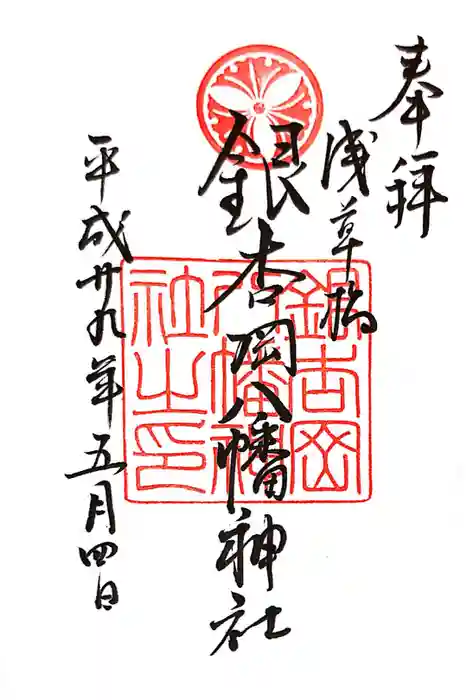 奉拝
浅草橋
銀杏岡八幡神社
平成廿九年五月四日
銀杏岡
八幡神
社之印